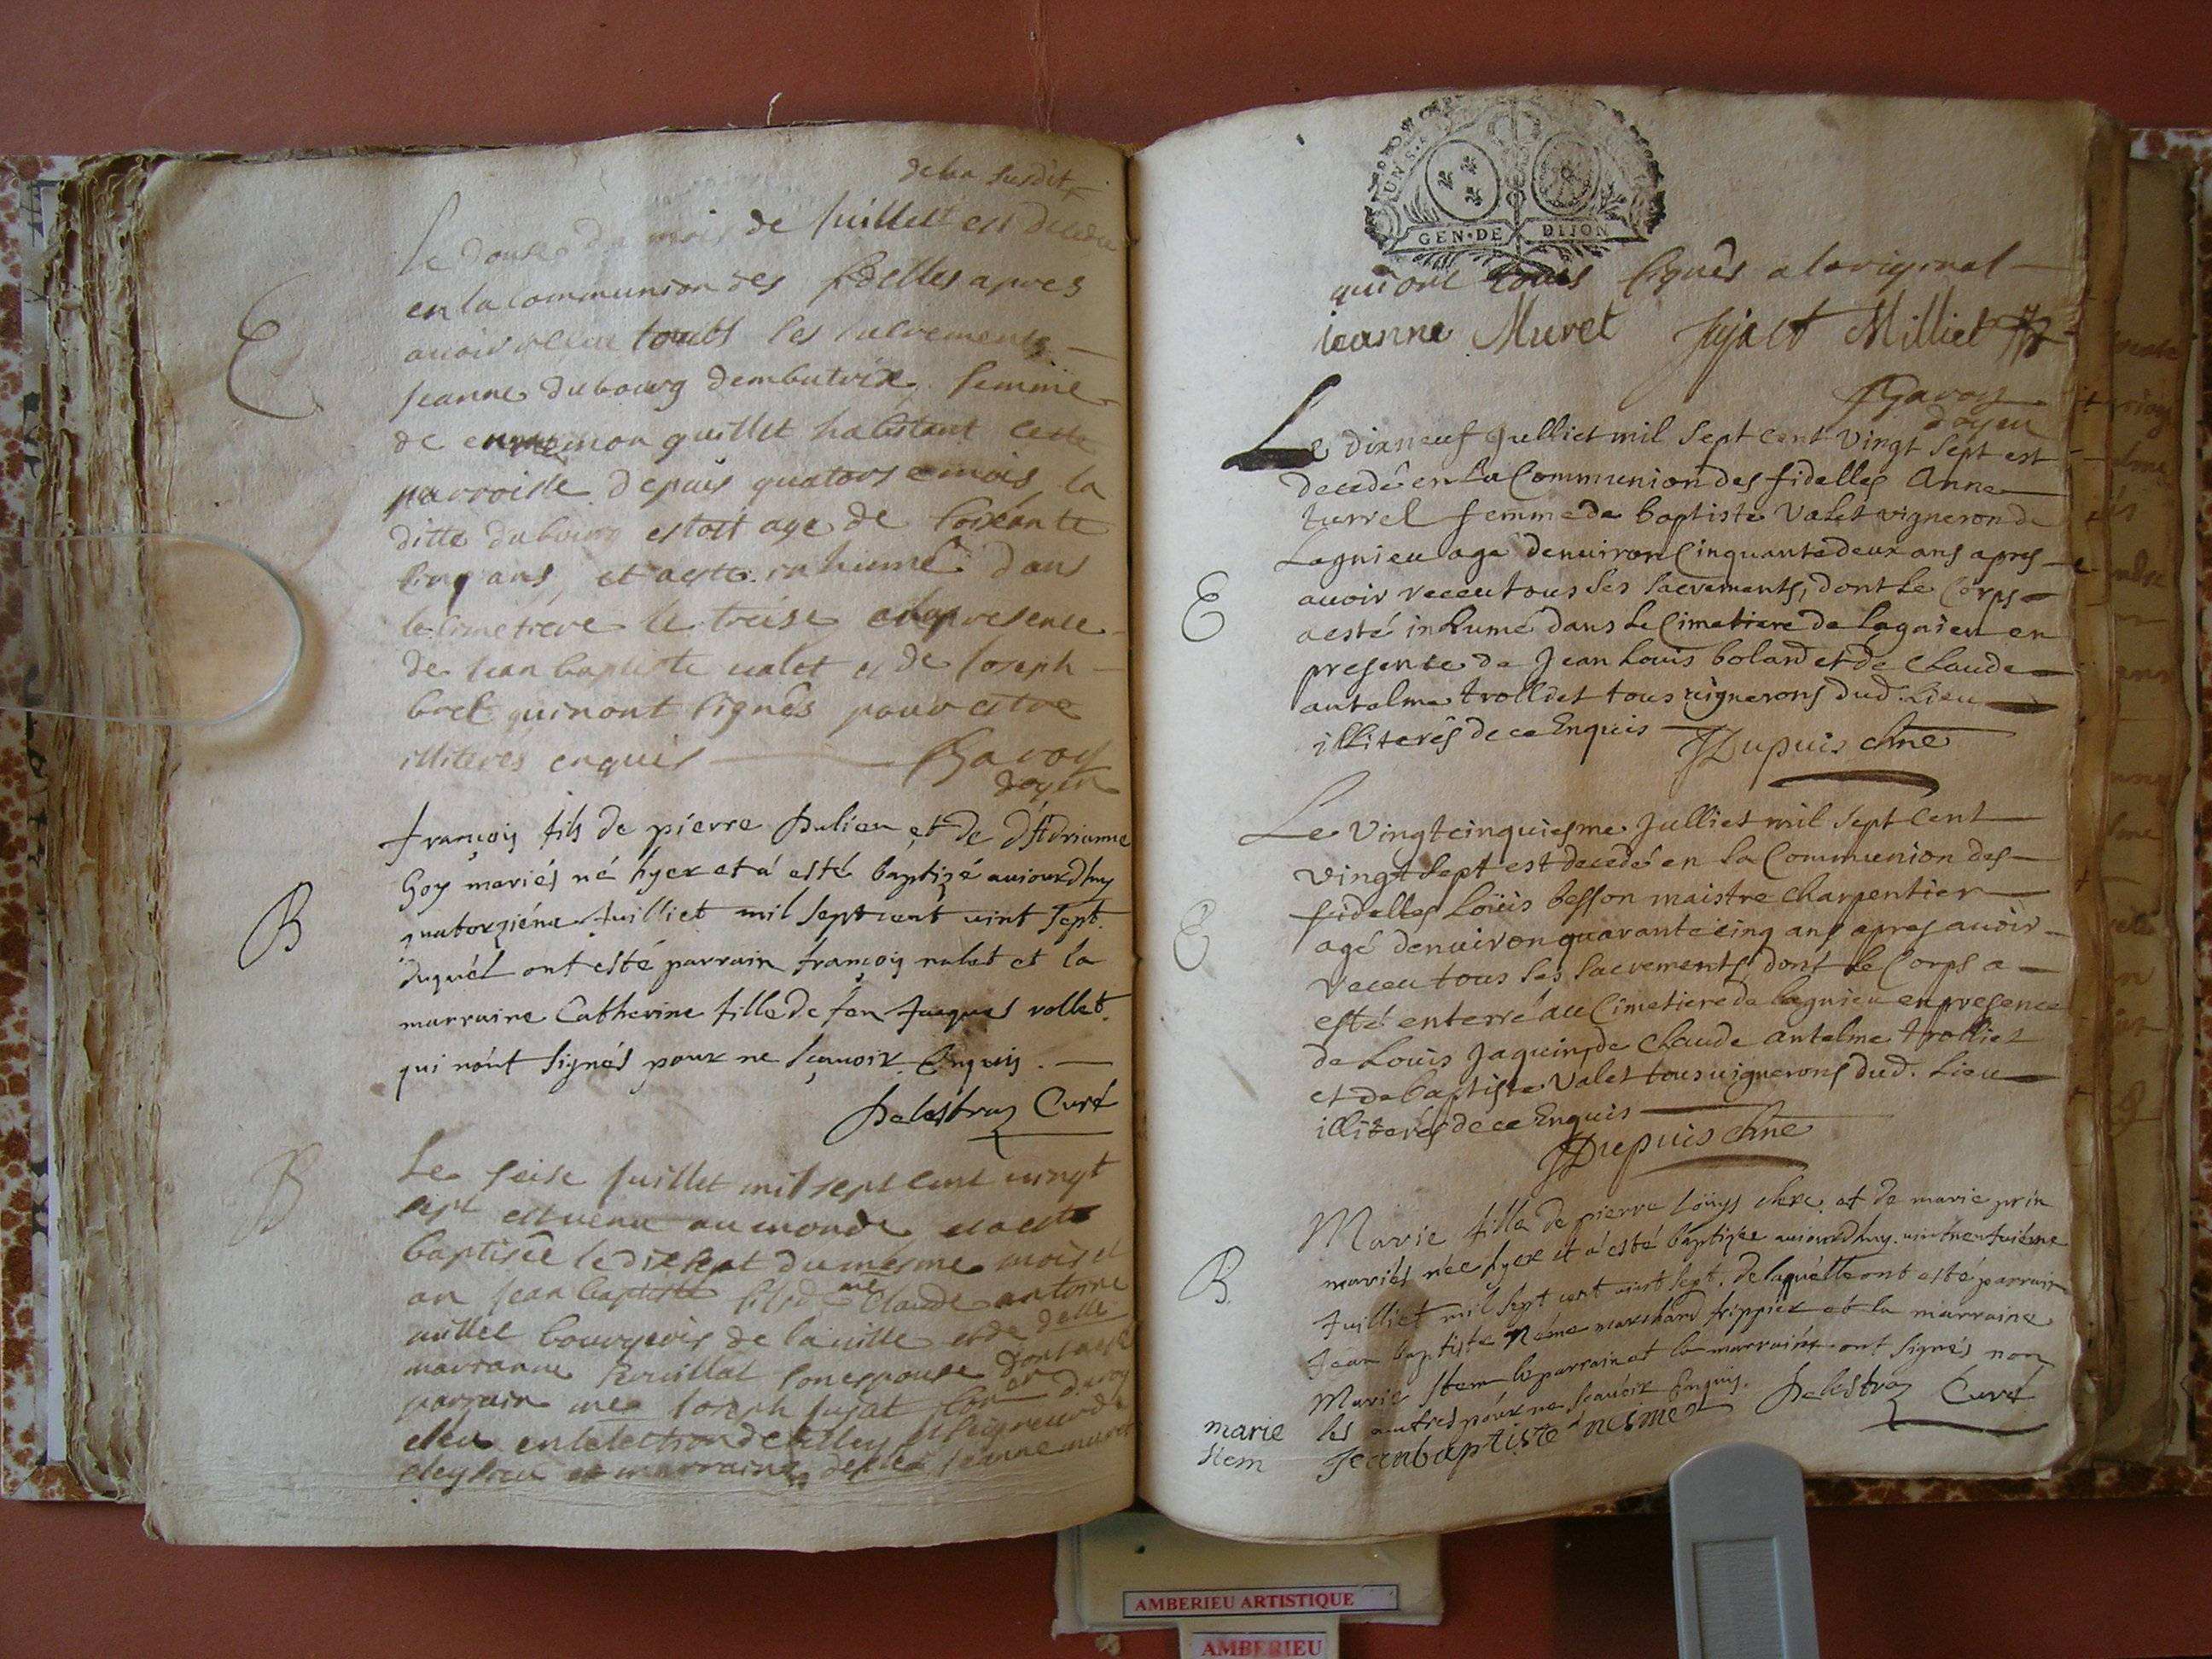 de la susditte
Le douse du mois de juillet est decedee
en la communion des fidelles apres
avoir receu touts les sacrements
E
jeanne dubourg dembutrix femme
de ennemon quillet habitant cette
parroisse depuis quatorse mois la
ditte dubourg estoit age de soixante
cinq ans, et a esté inhumé dans
le cimetiere le treise en presence
de jean baptiste valet et de joseph
bret qui n'ont signés pour estre
illiterés enquis
Garon
doyen
françois fils de pierre Julien et de d'Adrianne
Goy mariés né hyer et á esté baptizé auiourdhuy
B
quatorziéme Juilliet mil sept cent vint sept.
duquél ont esté parrain françois valet et la
marraine Catherine fille de feu Jacques vollet.
qui nónt signés pour ne sçauoir Enquis.
Delestraz Curé
B
Le seise juillet mil sept cent vingt
sept est venu au monde et a esté
baptisée le dix sept du mesme mois et
an jean baptiste fils de me Claude antoine
millet bourgeois de la ville et de delle
marianne son espouse dont a esté
parrain me joseph jujat con er du roy
eleu en l'election de belley et seigneur de
et marraine delle jeanne muret
GEN·DE DIJON
qui ont touts signés a l'original
ieanne Muret Jujat Milliet
Garon
doyen
Le dixneuf Julliet mil Sept Cent Vingt Sept est
decedé en La Communion des fidelles Anne
turrel femme de baptiste Valet vigneron de
Lagnieu agé denuiron Cinquante deux ans apres
E
auoir receu tous Ses Sacrements, dont Le Corps
a esté inhumé dans Le Cimetiere de Lagnieu en
presence de Jean Louis bolard et de Claude
antelme trolliet tous vignerons dud. Lieu
illiterés de ce Enquis
JDupuis chne
Le Vingtcinquiesme Julliet mil Sept Cent
Vingt Sept est decedé en La Communion des
fidelles Loüis besson maistre Charpentier
E
agé denuiron quarante cinq ans apres auoir
receu tous Ses Sacrements dont Le Corps a
esté enterré au Cimetiere de Lagnieu en presence
de Louis Jaquin, de Claude antelme trolliet
et de baptiste Valet tous vignerons dud. Lieu
illiterés de ce Enquis
JDupuis chne
Marie fille de pierre Loüys chere et de marie prin
mariés née hyer et á esté baptizée auiourdhuy. vintneufuiéme
B.
Juilliet mil sept cent vint sept. de laquélle ont esté parrain
Jean baptiste Néme marchand frippier et la marraine
Marie Stem le parrain et la marraine ont signés non
les autres pour ne scauoir Enquis. Delestraz Curé
marie
Stem
Jean baptiste nesme
AMBERIEU ARTISTIQUE
AMBERIEU